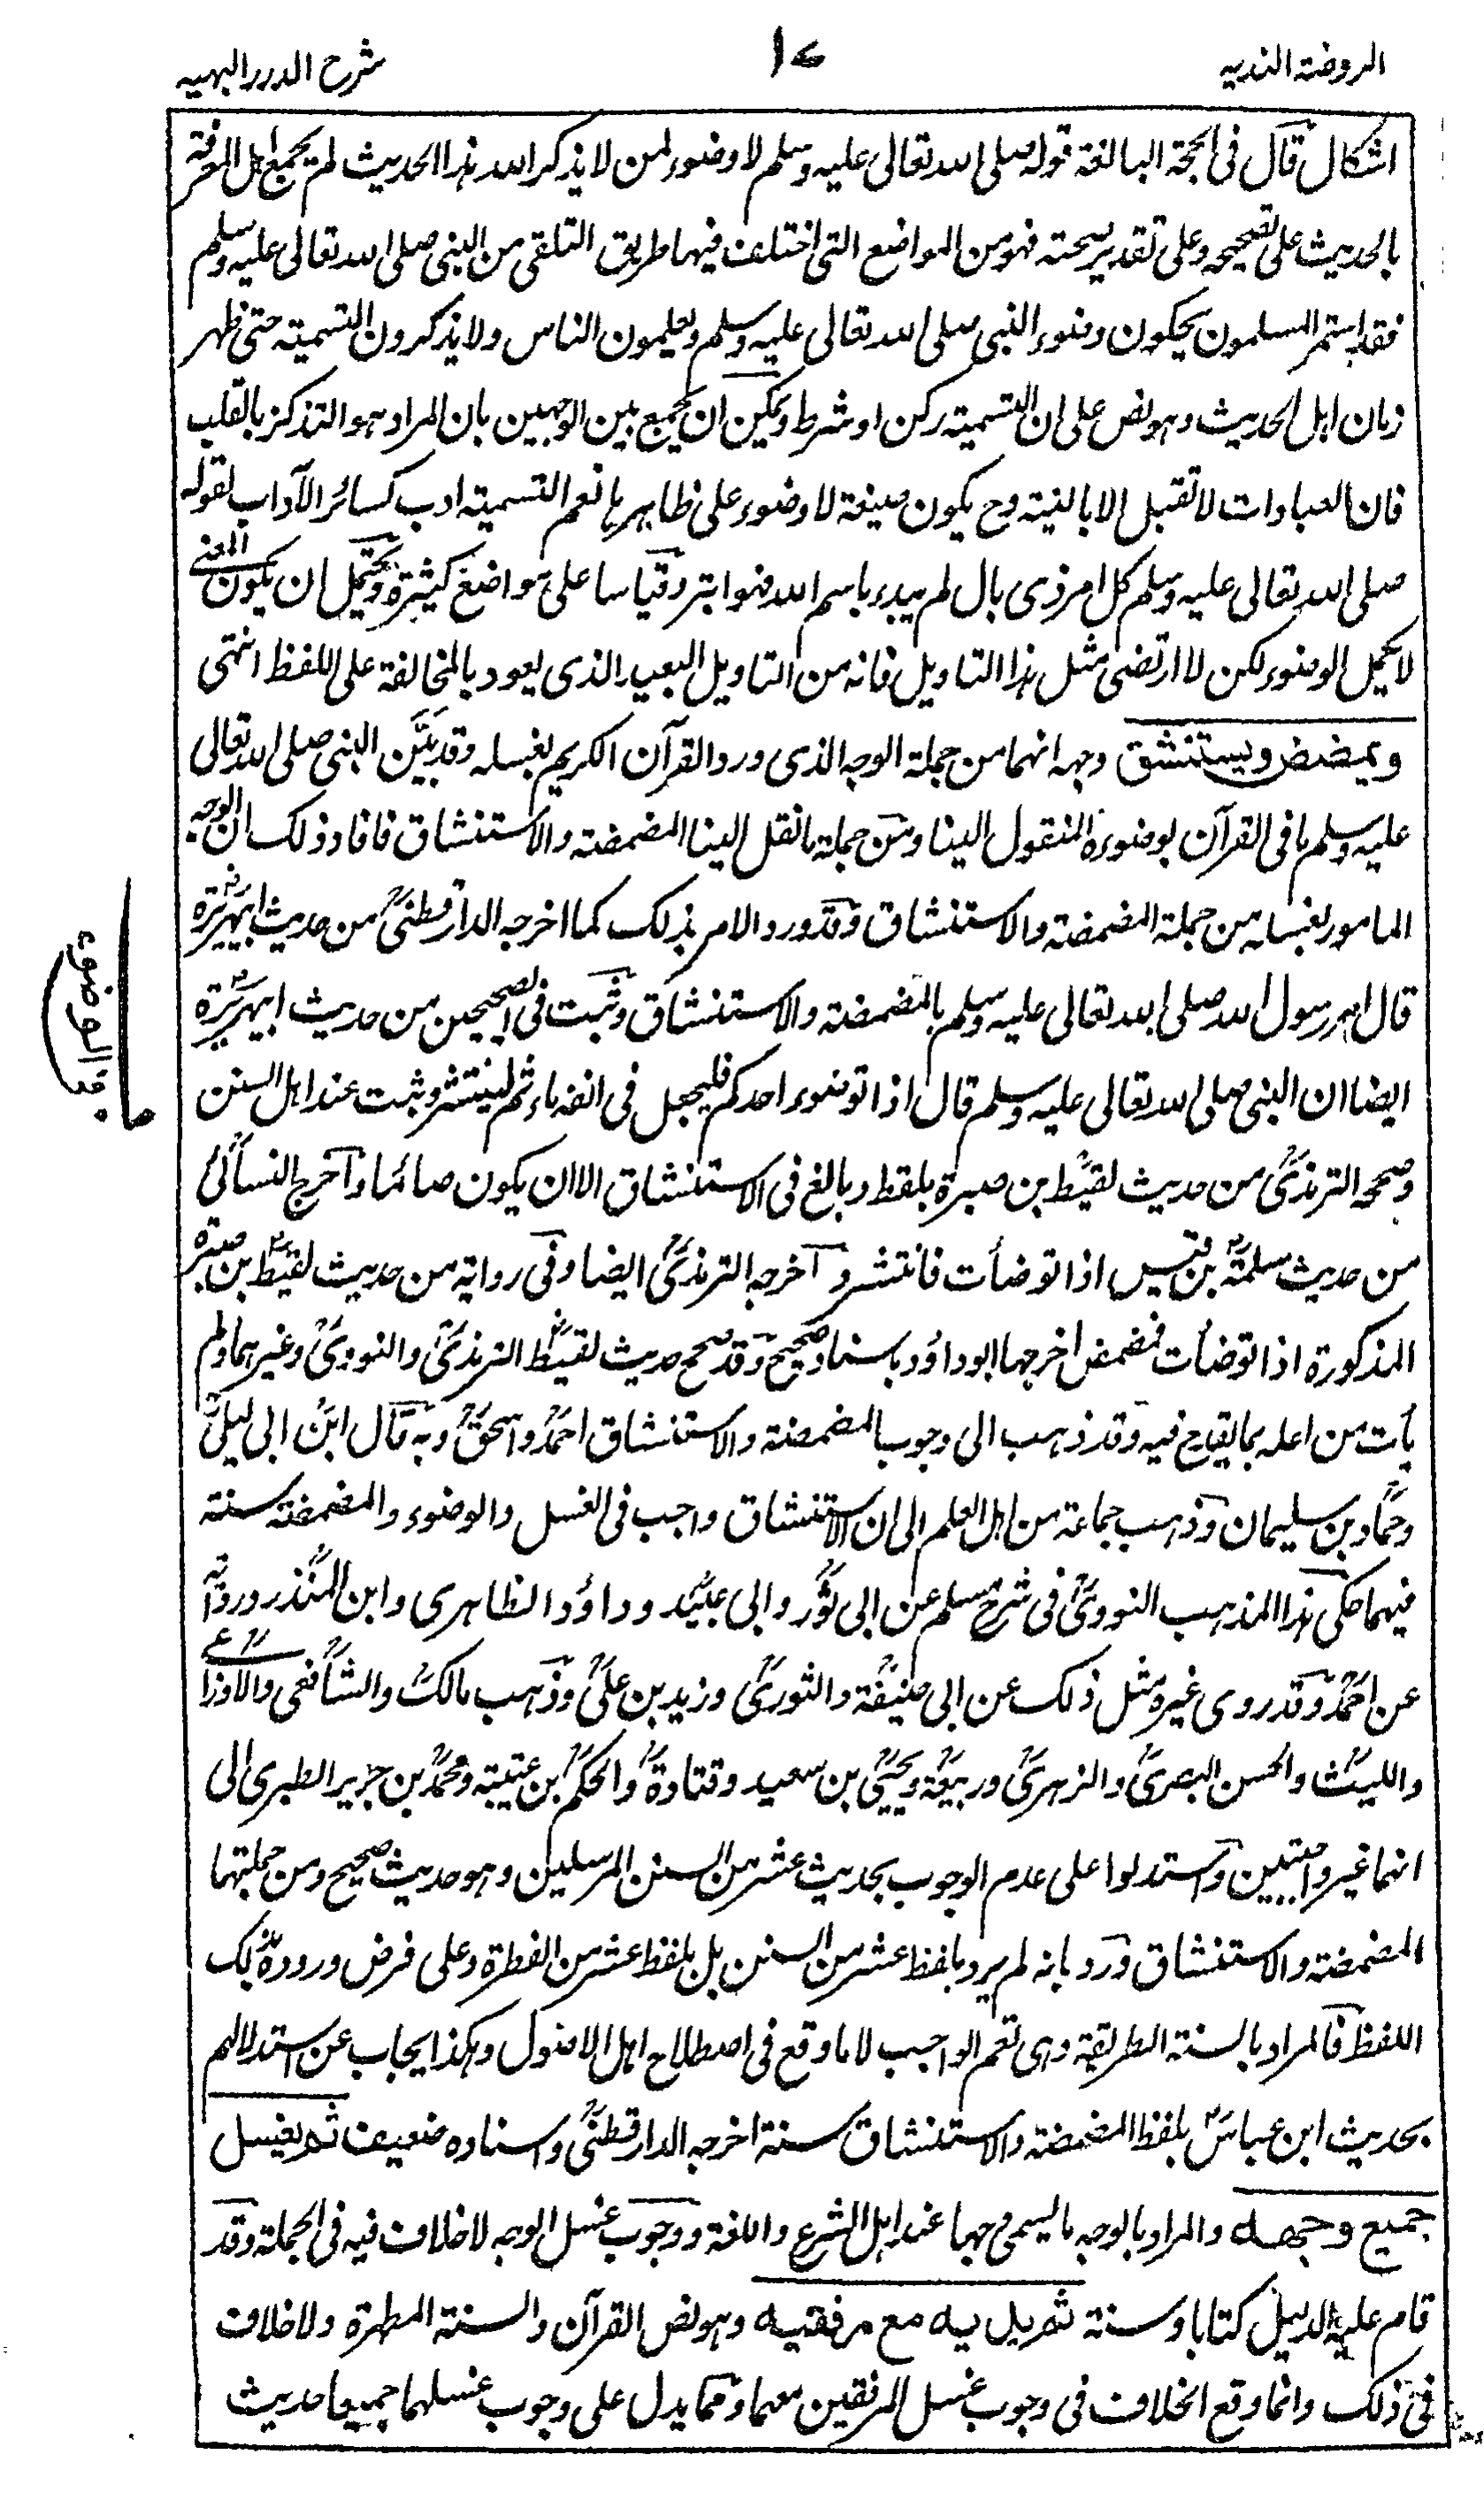 الروضة الندية
١٧
شرح الدرر البهية
اشكال قال في الحجة البالغة قوله صلى الله تعالى عليه وسلم لا وضوء لمن لا يذكر الله هذا الحديث لم يجمع اهل المعرفة
بالحديث على تصحيحه وعلى تقدير صحته فهو من المواضع التي اختلف فيها طريق التلقي من النبي صلى الله تعالى عليه وسلم
فقد استمر المسلمون يحكون وضوء النبي صلى الله تعالى عليه وسلم ويعلمون الناس ولا يذكرون التسمية حتى ظهر
زمان اهل الحديث وهو نص على ان التسمية ركن او شرط ويمكن ان يجمع بين الوجهين بان المراد هو التذكر بالقلب
فان العبادات لا تقبل الا بالنية وح يكون صيغة لا وضوء على ظاهرها نعم التسمية ادب كسائر الآداب لقوله
صلى الله تعالى عليه وسلم كل امر ذي بال لم يبدء باسم الله فهو ابتر وقياسا على مواضع كثيرة ويحتمل ان يكون المعنى
لا يكمل الوضوء لكن لا ارتضى مثل هذا التاويل فانه من التاويل البعيد الذي يعود بالمخالفة على اللفظ انتهى
ويمضمض ويستنشق وجهه انهما من جملة الوجه الذي ورد القرآن الكريم بغسله وقد بَيَّن النبي صلى الله تعالى
عليه وسلم ما في القرآن بوضوءه المنقول الينا ومن جملة ما نقل الينا المضمضة والاستنشاق فافاد ذلك ان الوجه
المامور بغسله من جملة المضمضة والاستنشاق وقد ورد الامر بذلك كما اخرجه الدارقطني من حديث ابيهريرة
قال امر رسول الله صلى الله تعالى عليه وسلم بالمضمضة والاستنشاق وثبت في الصحيحين من حديث ابيهريرة
ايضا ان النبي صلى الله تعالى عليه وسلم قال اذا توضوء احدكم فليجعل في انفه ماء ثم لينتثر وثبت عند اهل السنن
وصححه الترمذي من حديث لقيط بن صبرة بلفظ وبالغ في الاستنشاق الا ان يكون صائما واخرج النسائي
من حديث سلمة بن قيس اذا توضأت فانتثر و اخرجه الترمذي ايضا وفي رواية من حديث لقيط بن صبرة
المذكورة اذا توضأت فمضمض اخرجها ابو داؤد باسناد صحيح وقد صحح حديث لقيط الترمذي والنووي وغيرهما ولم
يأت من اعله بما يقدح فيه وقد ذهب الى وجوب المضمضة والاستنشاق احمد واسحق وبه قال ابن ابي ليلى
وحماد بن سليمان وذهب جماعة من اهل العلم الى ان الاستنشاق واجب في الغسل والوضوء والمضمضة سنة
فيهما حكى هذا المذهب النووي في شرح مسلم عن ابي ثور وابي عبيد وداؤد الظاهري وابن المنذر ورواية
عن احمد وقد روى غيره مثل ذلك عن ابي حنيفة والثوري وزيد بن علي وذهب مالك والشافعي والاوزاعي
والليث والحسن البصري والزهري وربيعة ويحيى بن سعيد وقتادة والحكم بن عتيبة ومحمد بن جرير الطبري الى
انهما غير واجبين واستدلوا على عدم الوجوب بحديث عشر من السنن المرسلين وهو حديث صحيح ومن جملتها
المضمضة والاستنشاق ورد بانه لم يرد بلفظ عشر من السنن بل بلفظ عشر من الفطرة وعلى فرض وروده بذلك
اللفظ فالمراد بالسنة الطريقة وهي تعم الواجب لا ما وقع في اصطلاح اهل الاصول وهكذا يجاب عن استدلالهم
بحديث ابن عباس بلفظ المضمضة والاستنشاق سنة اخرجه الدارقطني واسناده ضعيف ثم يغسل
جميع وجهه والمراد بالوجه ما يسمى وجها عند اهل الشرع واللغة ووجوب غسل الوجه لا خلاف فيه في الجملة وقد
قام عليه الدليل كتابا وسنة ثم يديه مع مرفقيه وهو نص القرآن والسنة المطهرة ولا خلاف
في ذلك وانما وقع الخلاف في وجوب غسل المرفقين معهما ومما يدل على وجوب غسلهما جميعا حديث